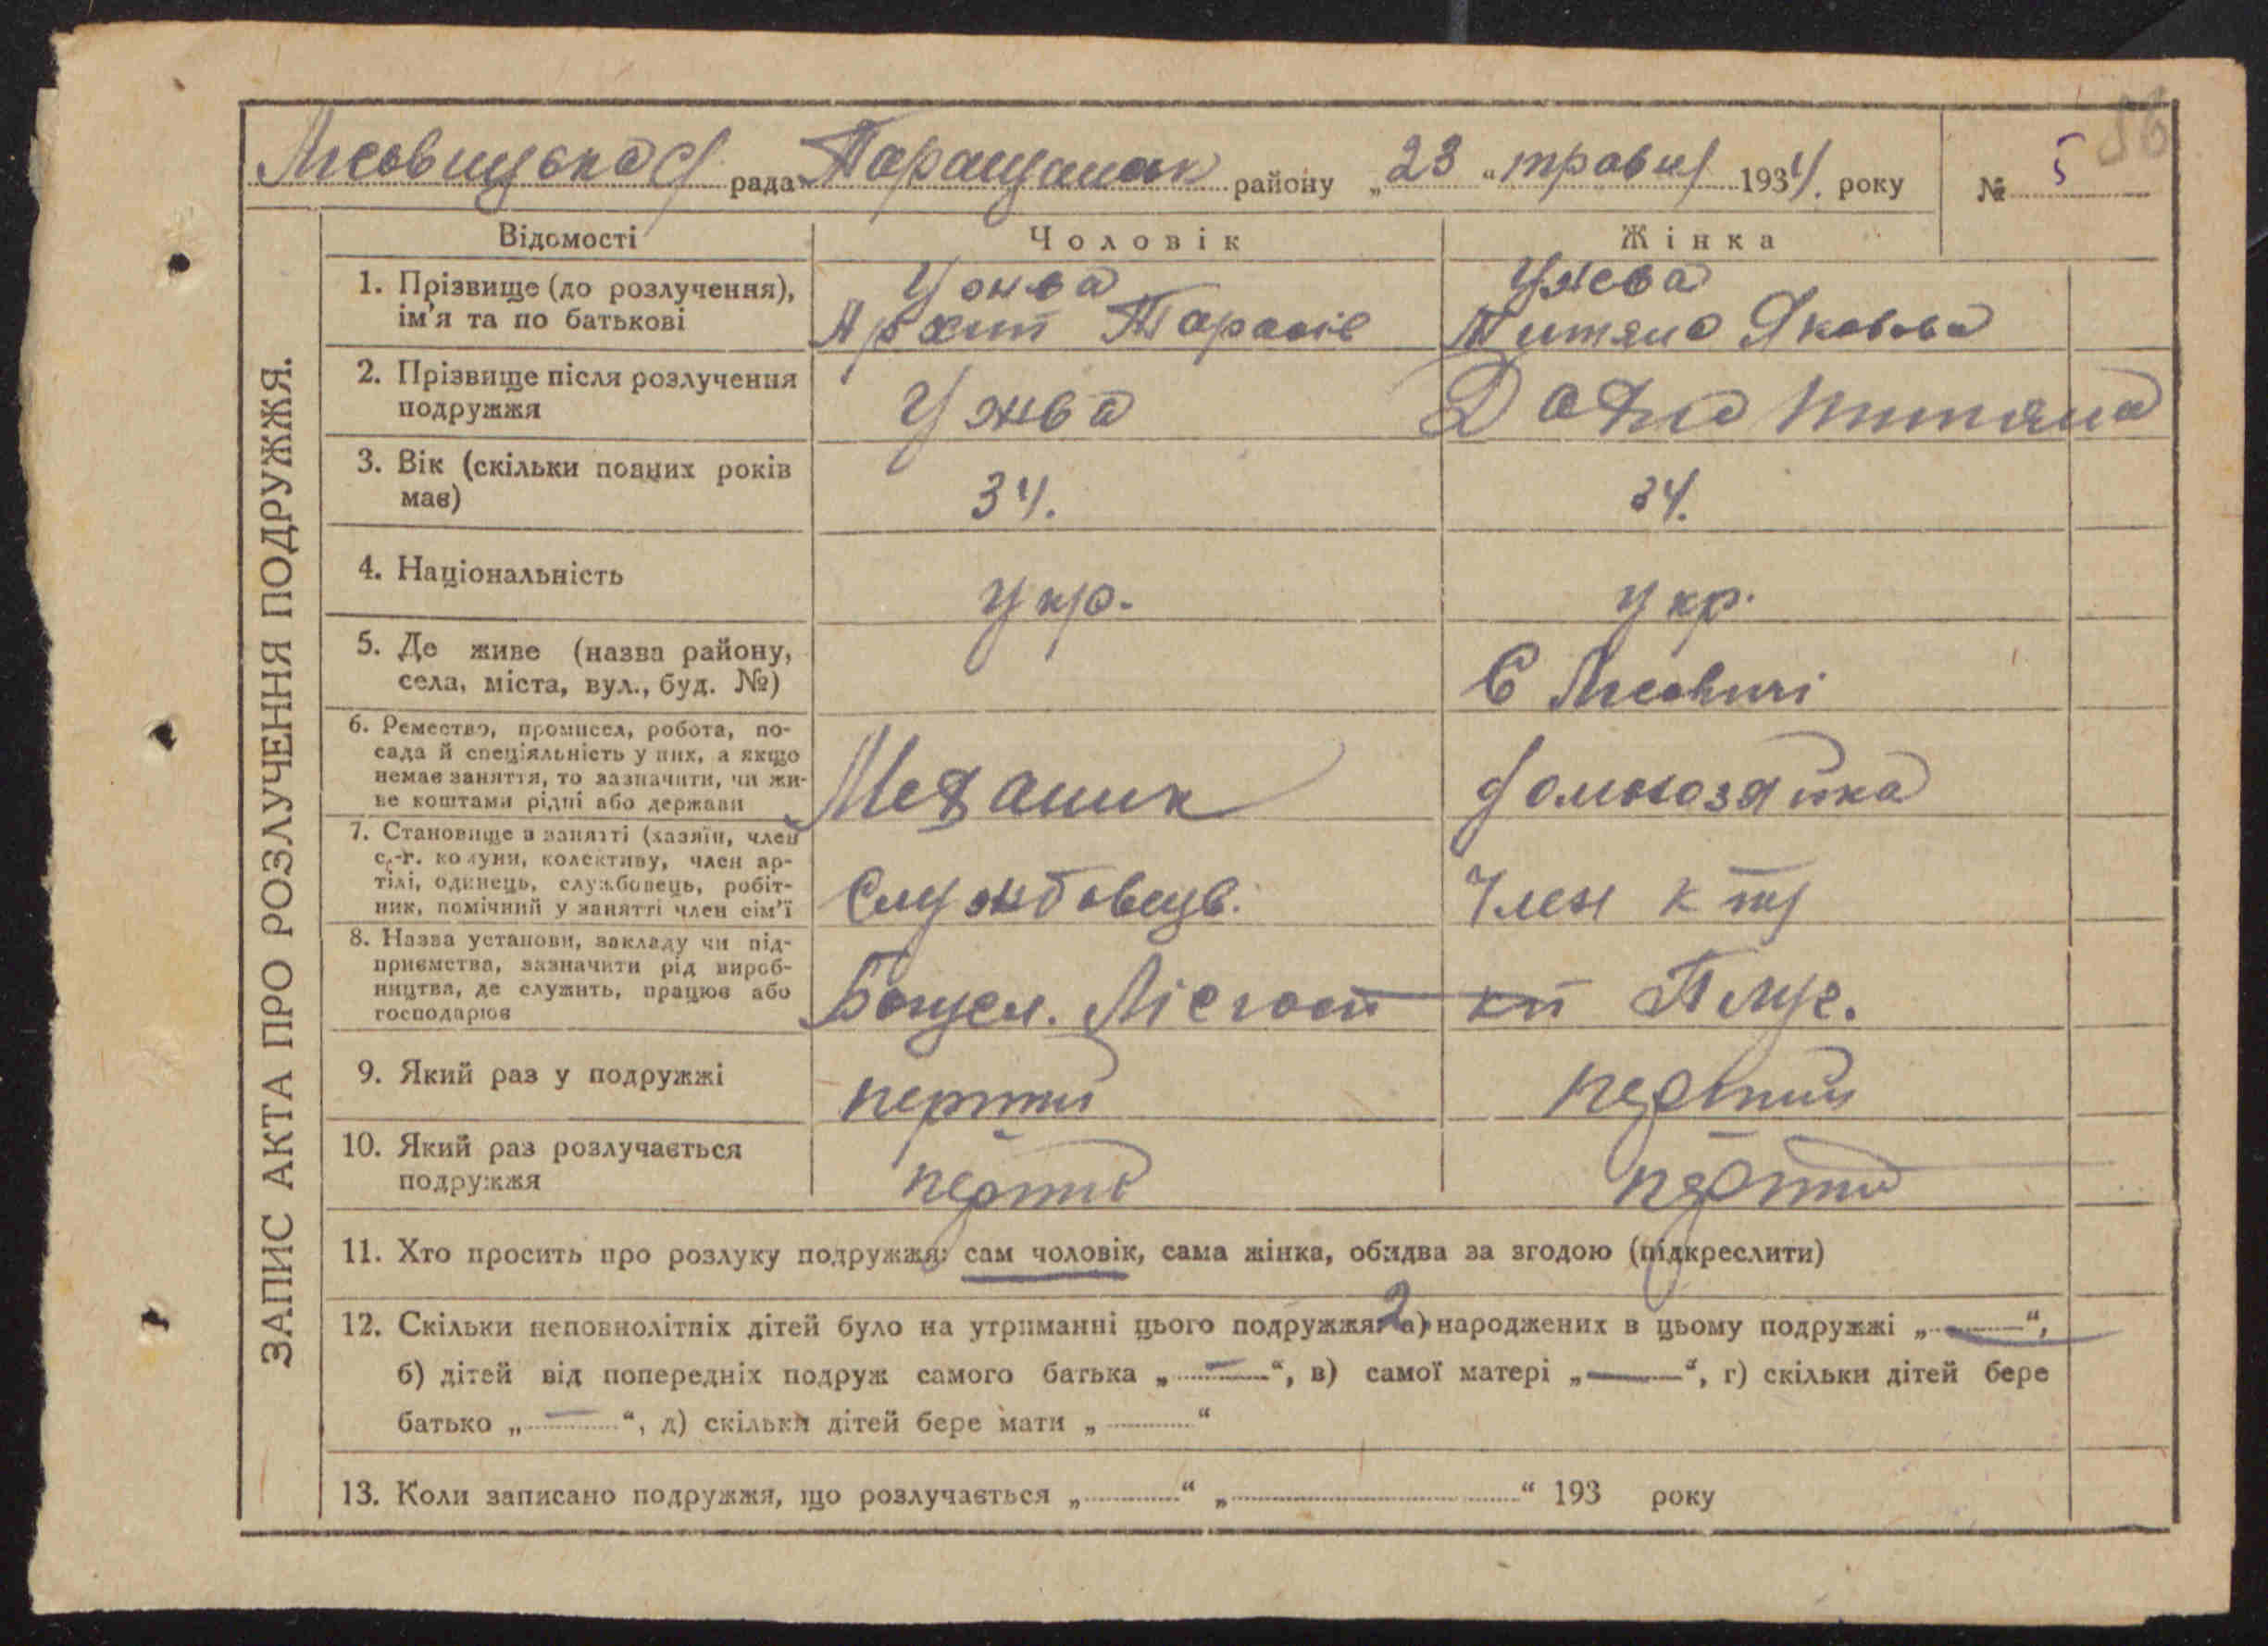 36
Лісовицька с/ рада Таращанськ району „23“ травня 1934. року № 5
ЗАПИС АКТА ПРО РОЗЛУЧЕННЯ ПОДРУЖЖЯ.
Відомості Чоловік Жінка
1. Прізвище (до розлучення), ім'я та по батькові
Ужва
Архип Тарасів
Ужва
Титяна Яковова
2. Прізвище після розлучення подружжя
Ужва
Титяна
3. Вік (скільки повних років має)
34.
34.
4. Національність
укр.
укр.
5. Де живе (назва району, села, міста, вул., буд. №)
С Лісовичі
6. Ремество, промисел, робота, посада й спеціяльність у них, а якщо немає заняття, то зазначити, чи живе коштами рідні або держави
Механик
домохозяйка
7. Становище в занятті (хазяїн, член с.-г. комуни, колективу, член артілі, одинець, службовець, робітник, помічний у занятті член сім'ї
Службовець.
Член к гу
8. Назва установи, закладу чи підприємства, зазначити рід виробництва, де служить, працює або господарює
Лісгосп
9. Який раз у подружжі
перший
перший
10. Який раз розлучається подружжя
перший
перший
11. Хто просить про розлуку подружжя: сам чоловік, сама жінка, обидва за згодою (підкреслити)
12. Скільки неповнолітніх дітей було на утриманні цього подружжя: 2 а) народжених в цьому подружжі „—“,
б) дітей від попередніх подруж самого батька „—“, в) самої матері „—“, г) скільки дітей бере
батько „—“, д) скільки дітей бере мати „ “
13. Коли записано подружжя, що розлучається „ “ „ “ 193 року